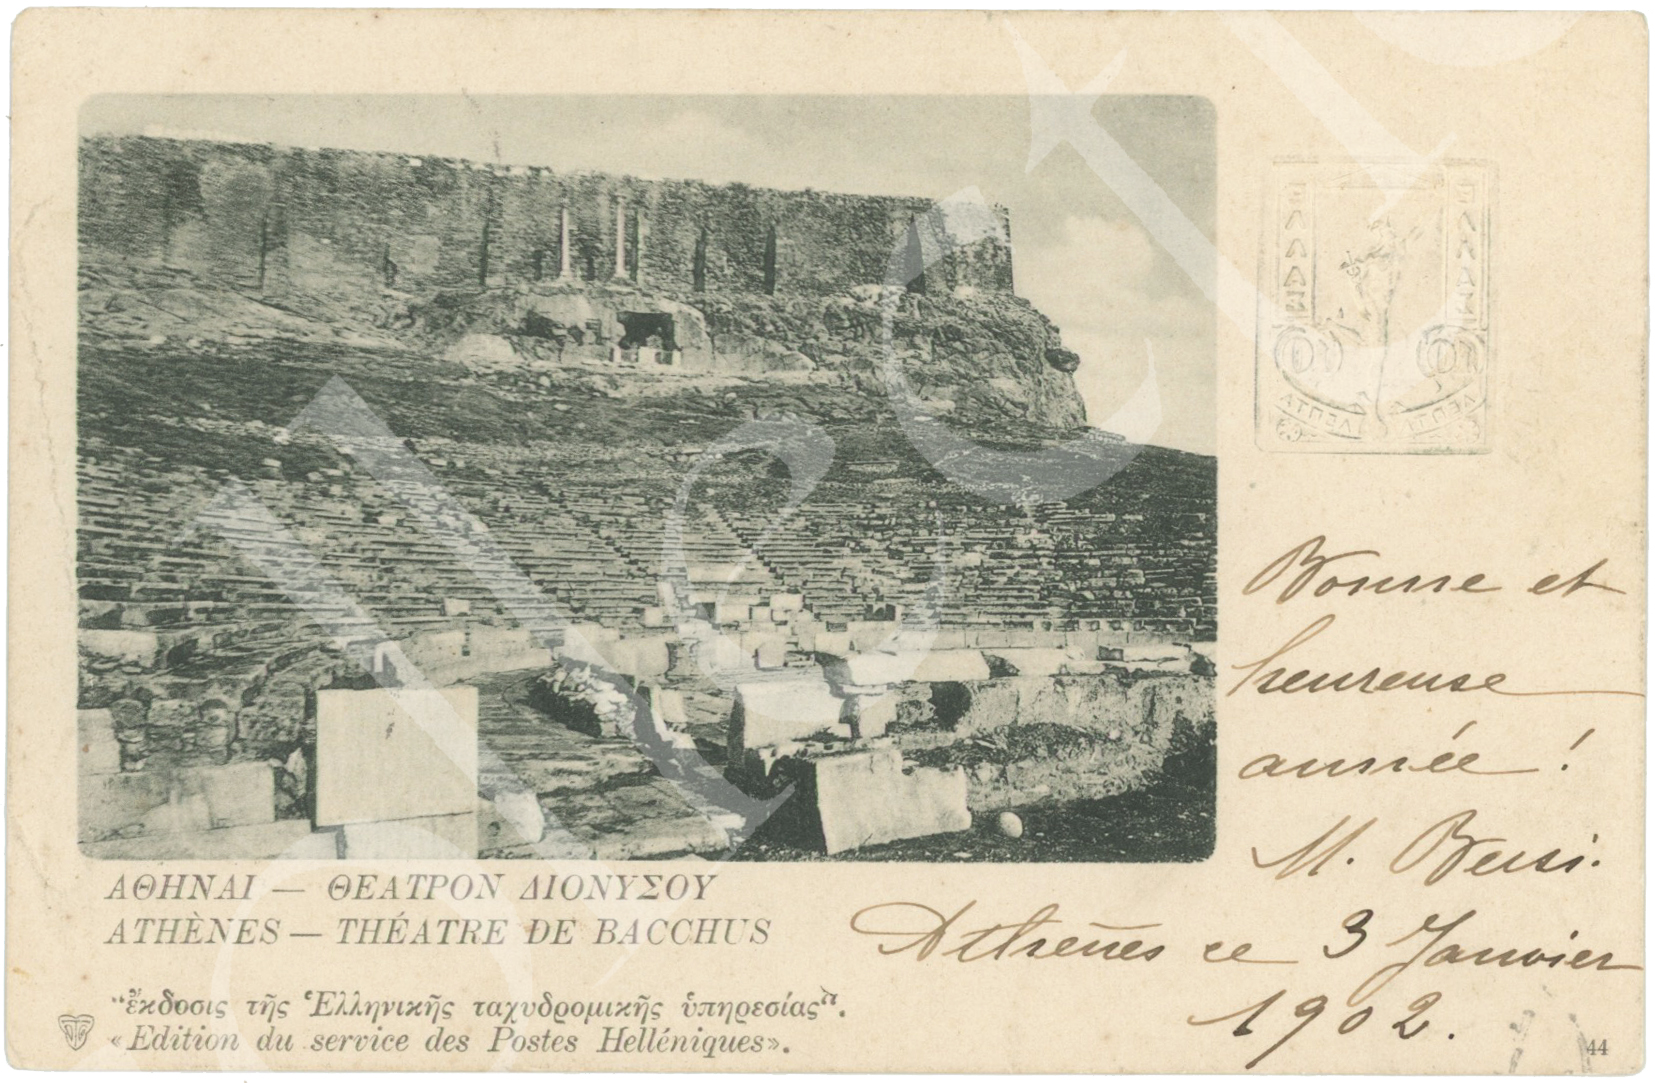 ΑΘΗΝΑΙ — ΘΕΑΤΡΟΝ ΔΙΟΝΥΣΟΥ
ATHÈNES — THÉATRE DE BACCHUS
“ἔκδοσις τῆς Ἑλληνικῆς ταχυδρομικῆς ὑπηρεσίας”.
«Edition du service des Postes Helléniques».
ΕΛΛΑΣ
ΕΛΛΑΣ
10
10
ΛΕΠΤΑ
ΛΕΠΤΑ
Bonne et
heureuse
année !
M.
Athènes ce 3 Janvier
1902.
44